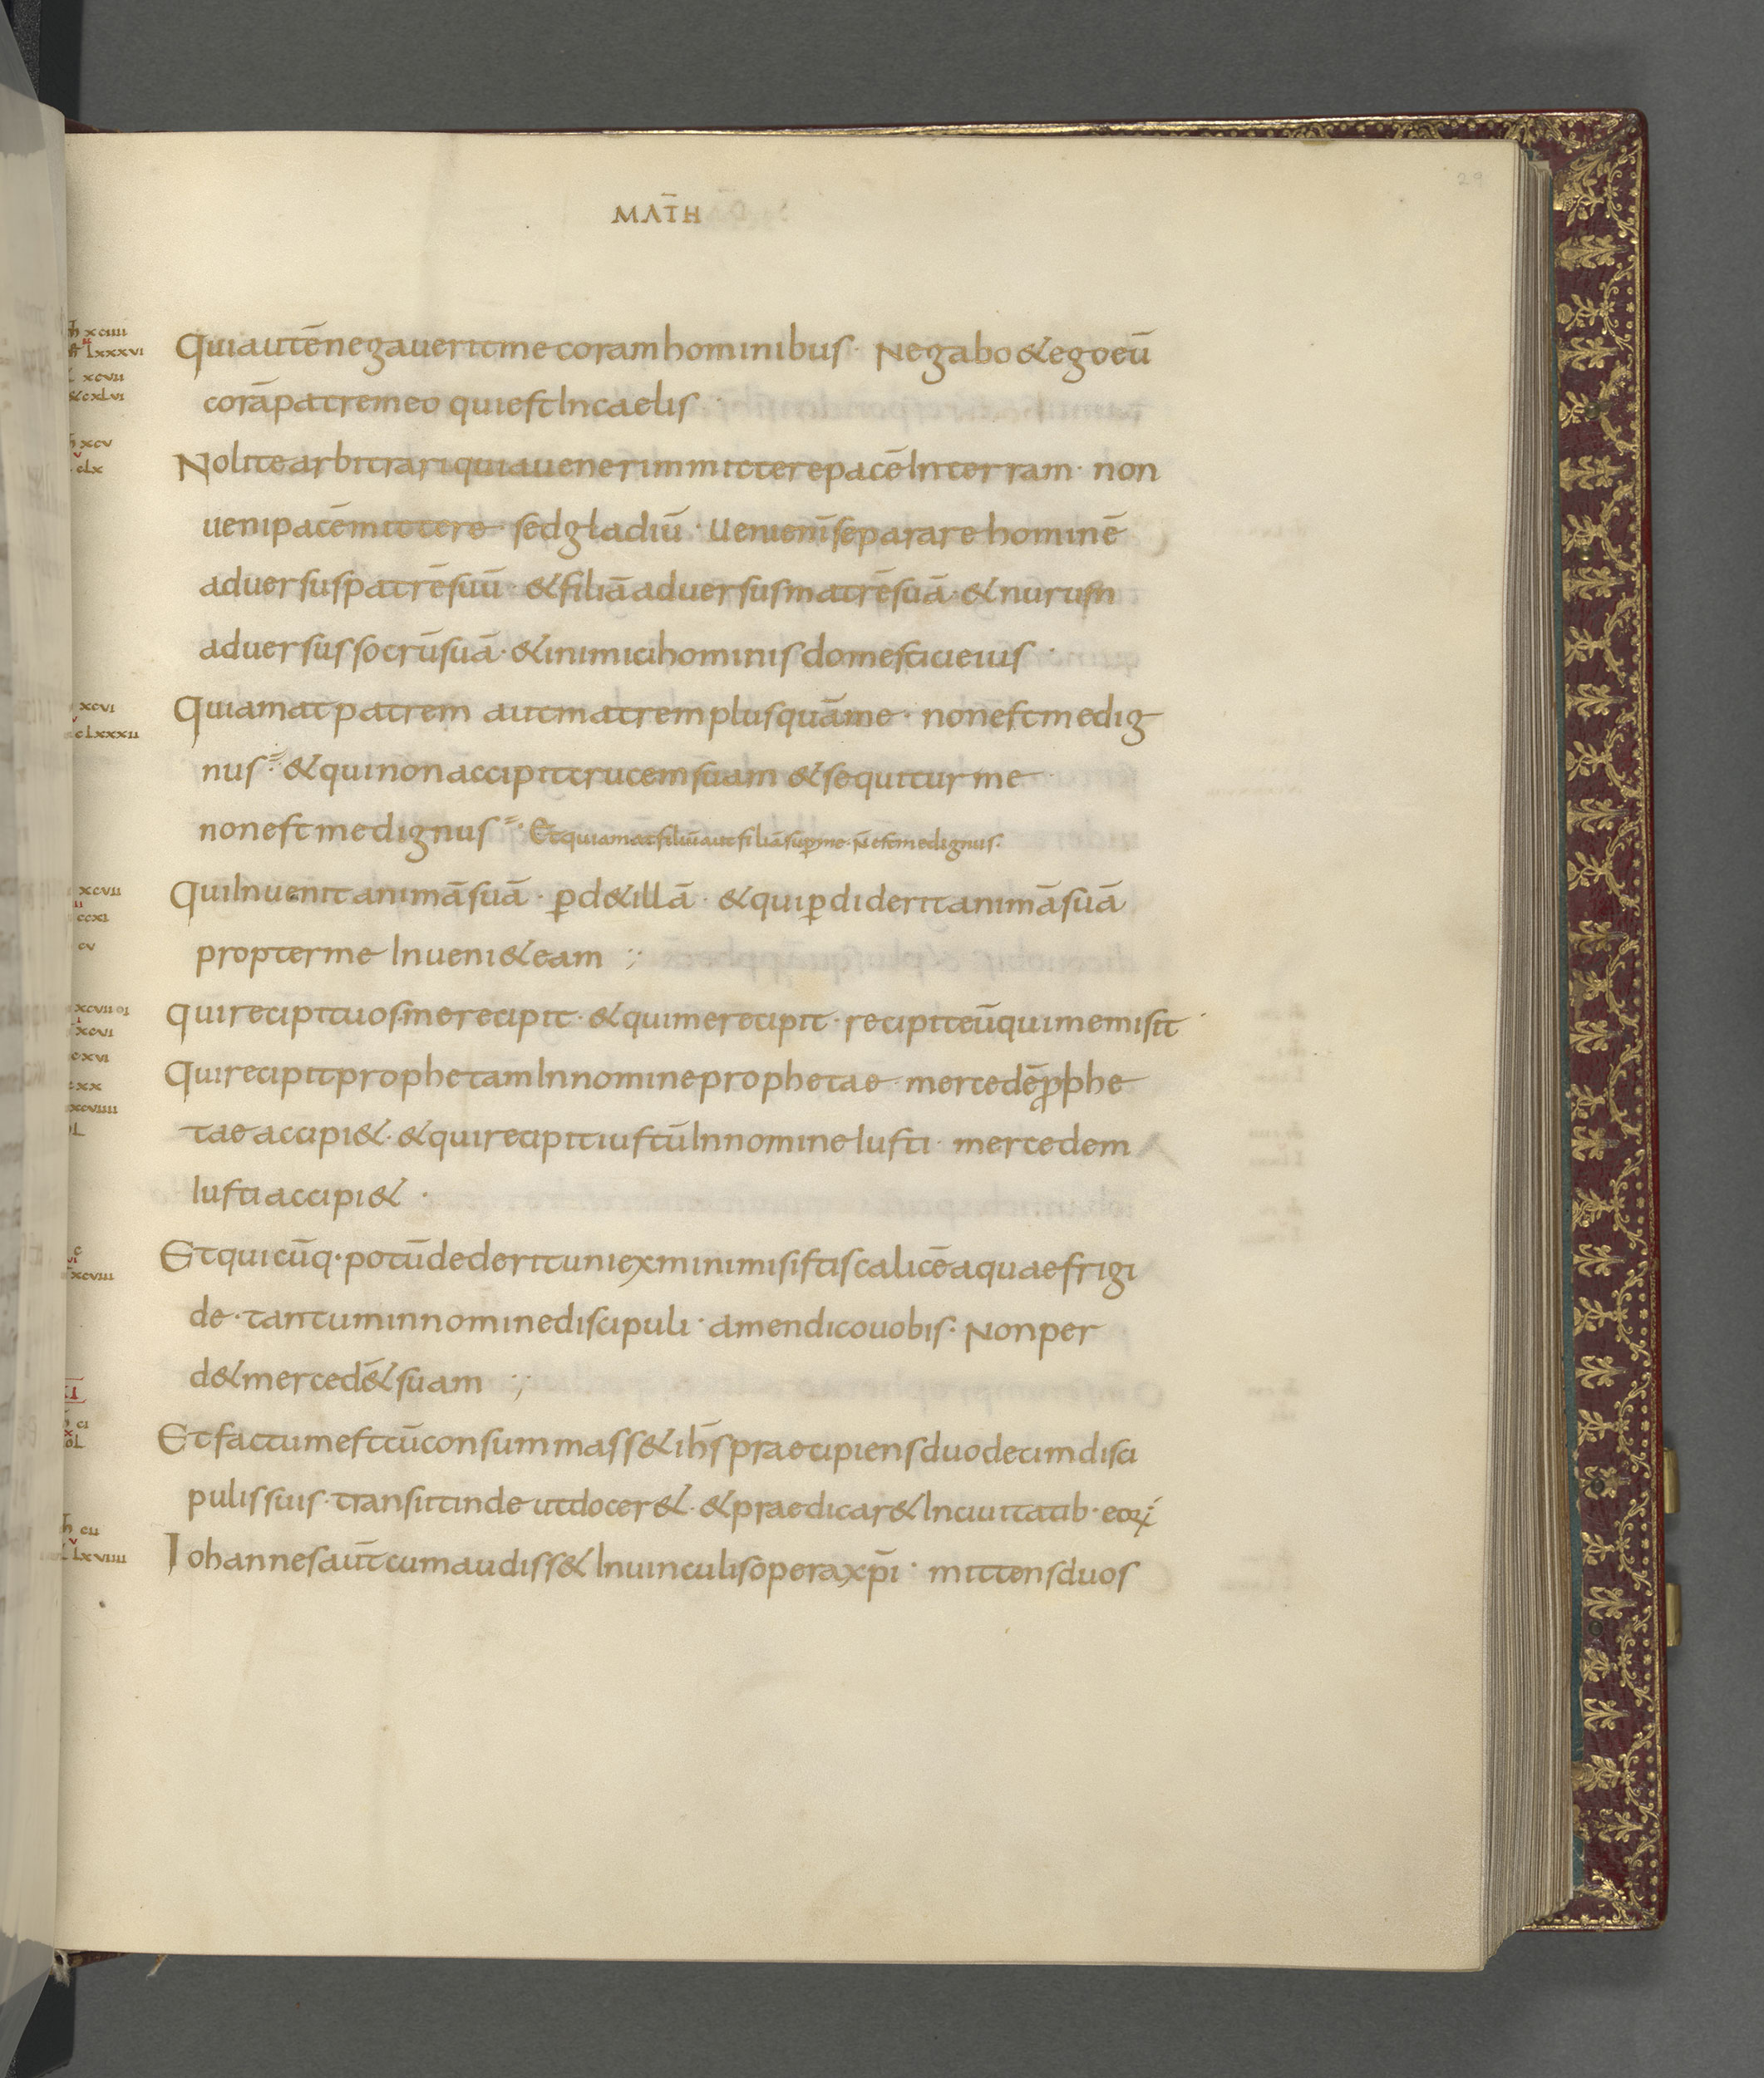 29
MAT̄H
Qui autē negauerit me coram hominibus · Negabo & ego eū
corā patre meo qui est In caelis ·
Nolite arbitrari quia uenerim mittere pacē In terram · non
ueni pacē mittere sed gladiū · Ueni eni̅ separare hominē
aduersus patrē suū · & filiā aduersus matrē suā · & nurum
aduersus socrū suā · & inimici hominis domestici eius ·
Qui amat patrem aut matrem plus quā me · non est me dig
nus · & qui non accipit crucem suam & sequitur me
non est me dignus · Et qui amat filiū aut filiā sup̄ me · N̄ est me dignus ·
Qui Inuenit animā suā · ꝑd& illā · & qui ꝑdiderit animā suā
propter me Inueni& eam ·,·
Qui recipit uos me recipit · & qui me recipit · recipit eū qui me misit ·
Qui recipit prophetam In nomine prophetae mercedē ꝓphe
tae accipi& · & qui recipit iustū In nomine Iusti · mercedem
Iusti accipi& ·
Et quicūq · potū dederit uni ex minimis istis calicē aquae frigi
de · tantum in nomine discipuli · amen dico uobis · Non per
d& mercedē suam ·,·
Et factum est cū consummass& ih̄s praecipiens duodecim disci
pulis suis · transiit inde ut docer& · & praedicar& In ciuitatib · eoꝝ
Iohannes aūt cum audiss& In uinculis opera xp̄i · mittens duos
xciiii
lxxxvi
xcvii
cxlvi
xcv
clx
xcvi
clxxxii
xcvii
ccxi
cv
xcvii
xcvi
cxvi
xcviiii
xcviii
ci
cii
lxviiii